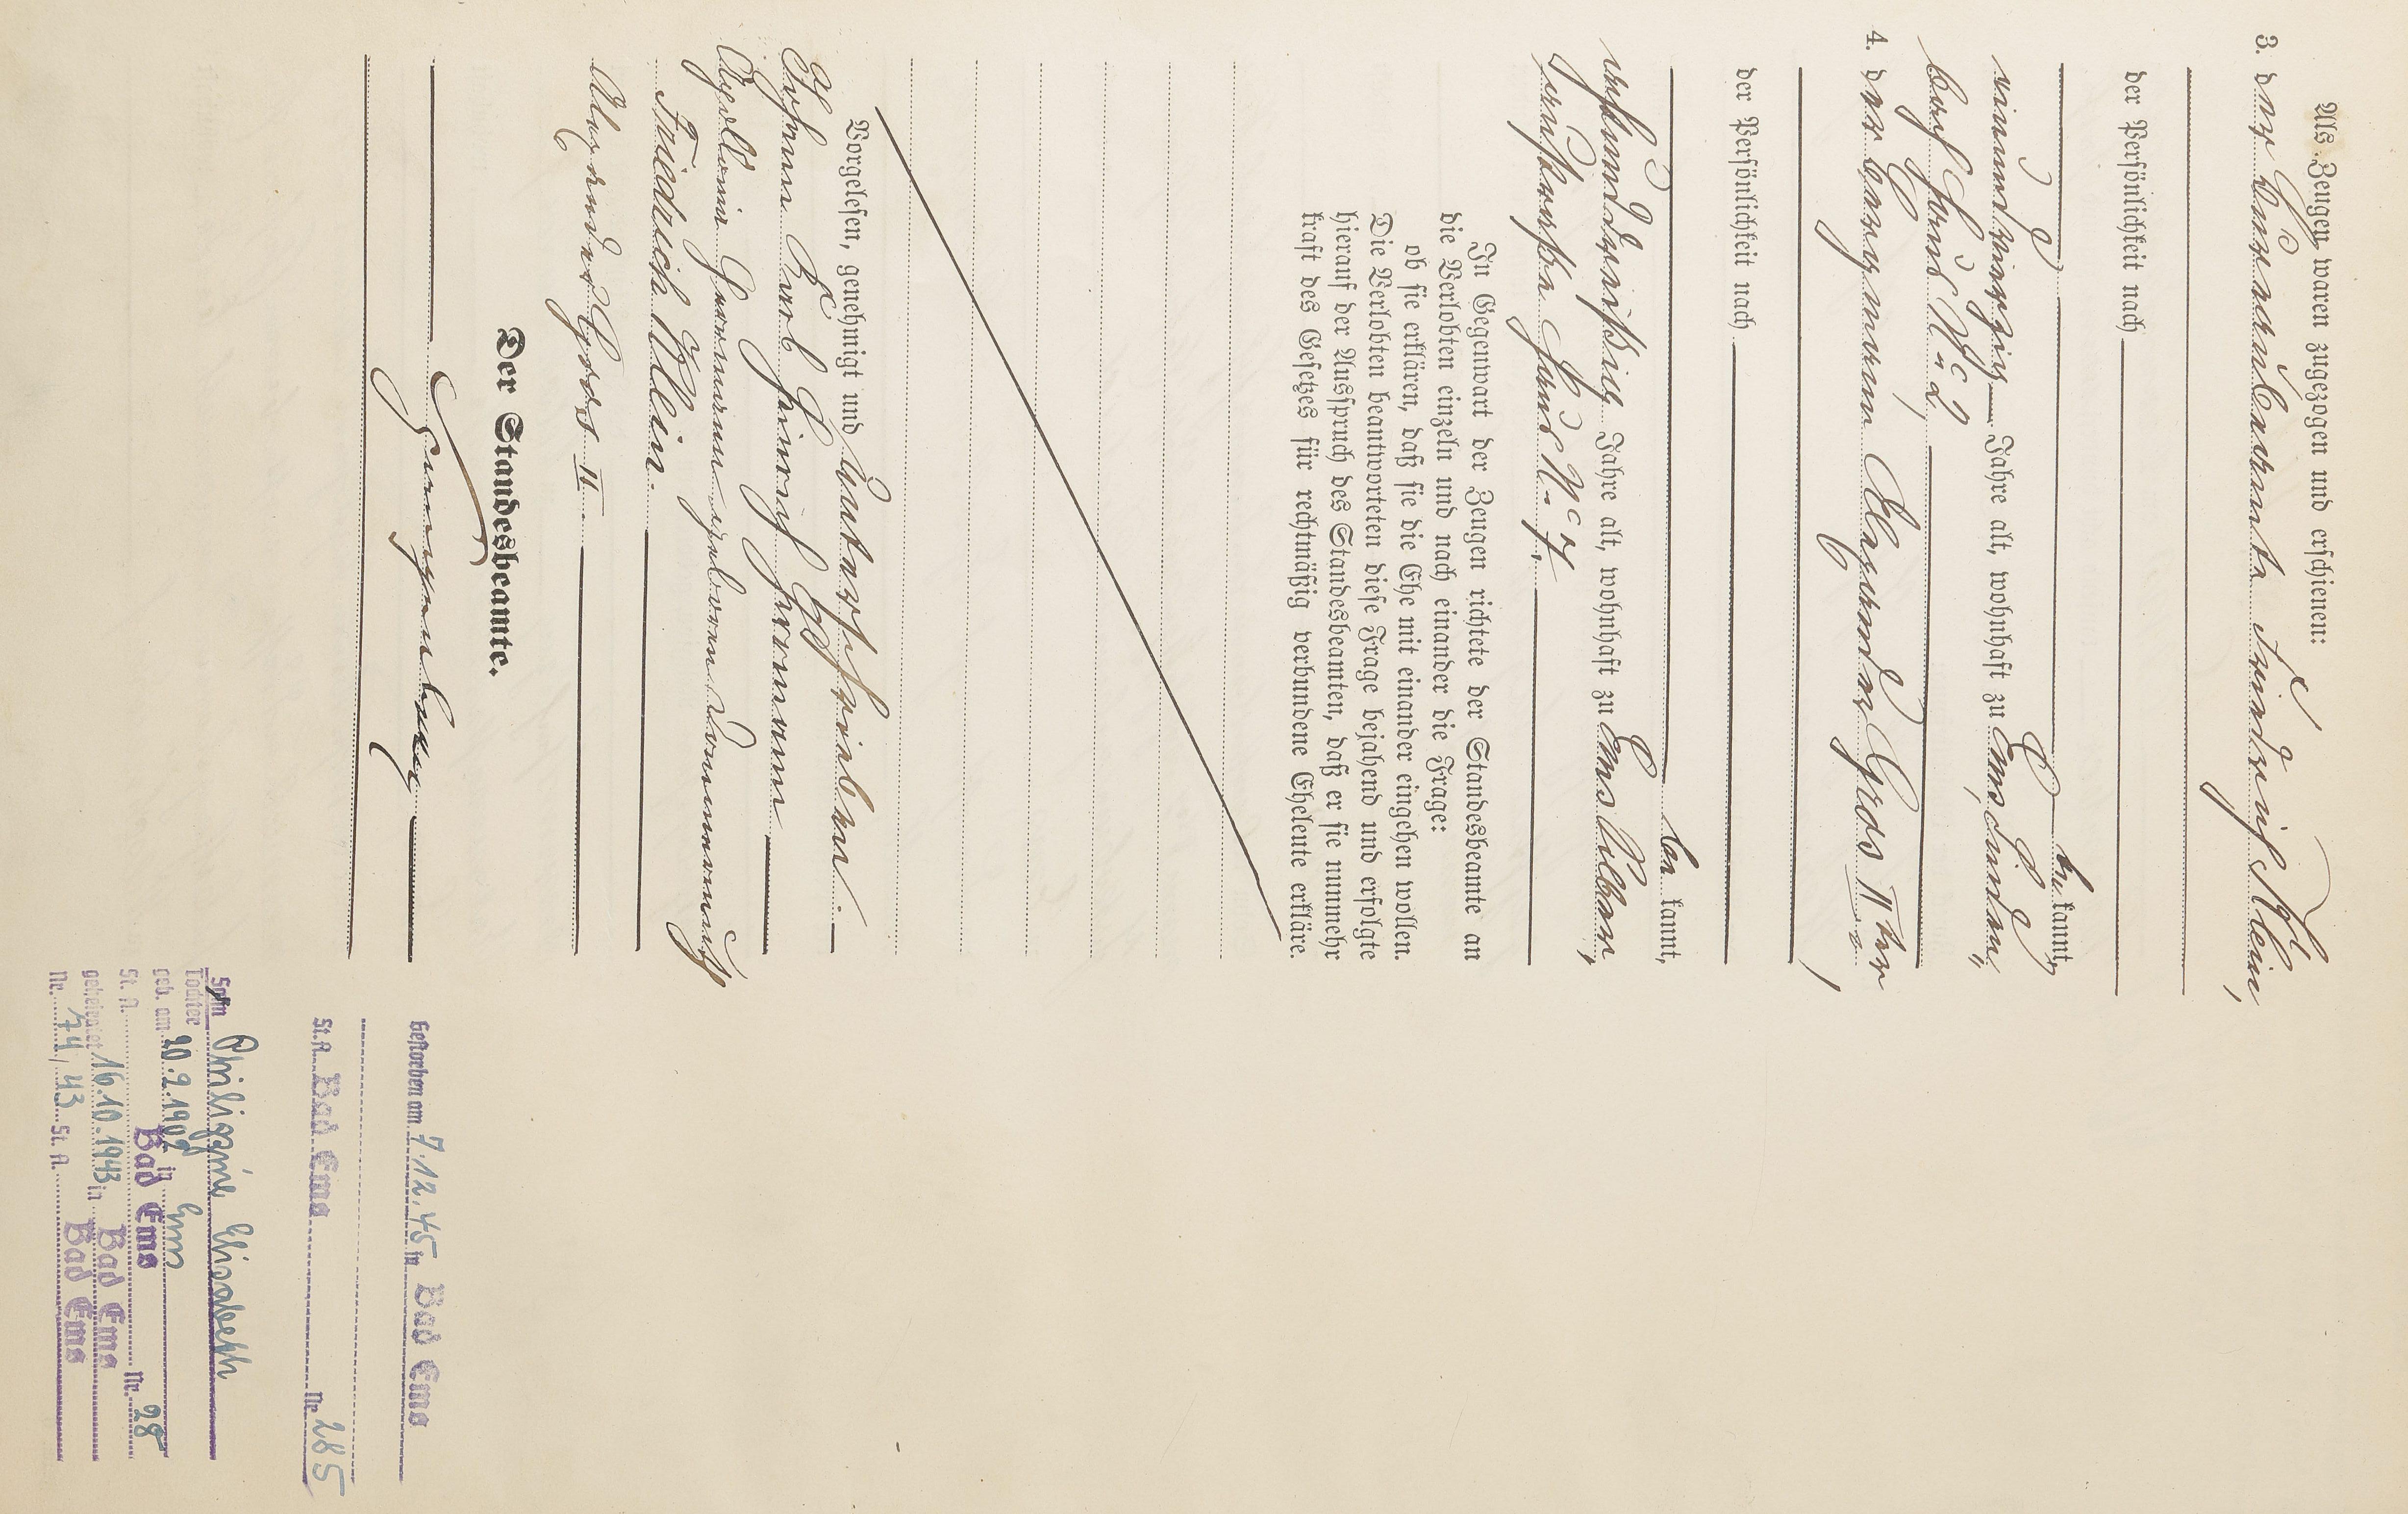 Als Zeugen waren zugezogen und erschienen:
3. der Büreaubeamte Friedrich Klein,
der Persönlichkeit nach
be kannt,
einundvierzig Jahre alt, wohnhaft zu Ems, Linden
bach Haus No 2,
4. der Bergmann Alexander Gros IIter,
der Persönlichkeit nach
be kannt,
achtunddreißig Jahre alt, wohnhaft zu Ems Silbaer,
Haus No
In Gegenwart der Zeugen richtete der Standesbeamte an
die Verlobten einzeln und nach einander die Frage:
ob sie erklären, daß sie die Ehe mit einander eingehen wollen.
Die Verlobten beantworteten diese Frage bejahend und erfolgte
hierauf der Ausspruch des Standesbeamten, daß er sie nunmehr
kraft des Gesetzes für rechtmäßig verbundene Eheleute erkläre.
Vorgelesen, genehmigt und unterschrieben.
Johann Karl Heinrich Herrmann
Herrmann geborene
Friedrich Klein.
Alexander Gros II.
Der Standesbeamte.
Gestorben am 7.12.45 in Bad Ems
St.A. Bad Ems Nr. 285
Sohn Philippine Elisabeth
Tochter
geb. am 20.2.1902 in Ems
St. A. Bad Ems Nr. 28
geheiratet 16.10.1943 in Bad Ems
Nr. 74/43 St. A. Bad Ems